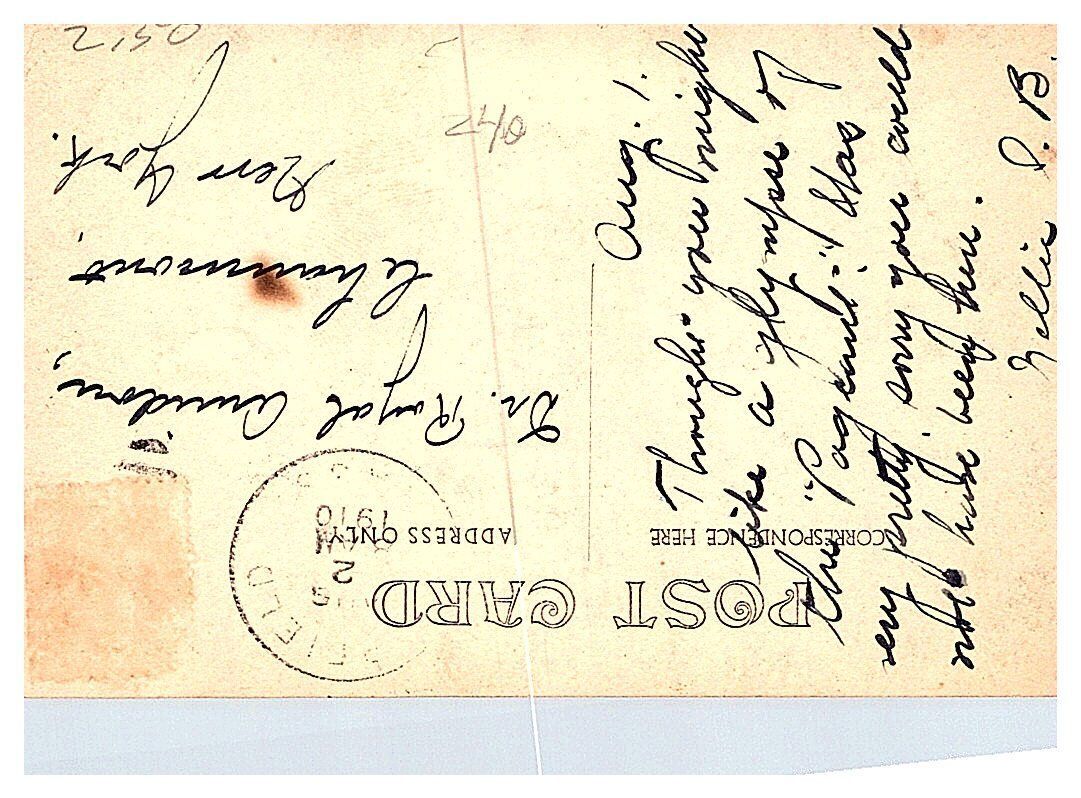 POST CARD
CORRESPONDENCE HERE
ADDRESS ONLY
FIELD
2
1910
Aug. 1.
Thought you might
like a glympse of
the "Pageant." Was
very pretty, sorry you could
not have been here.
Nellie S. B.
Dr. Royal Amidon,
Chaumont,
New York.
2.50